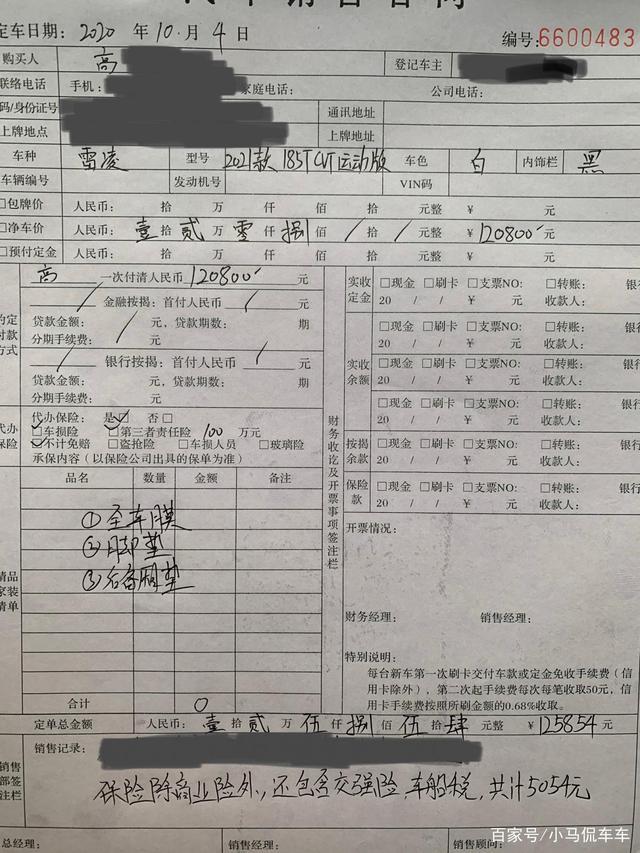 定车日期： 2020 年 10 月 4 日
编号:6600483
购买人 高 登记车主
联络电话 手机: 家庭电话: 公司电话:
码/身份证号 通讯地址
上牌地点 上牌地址
车种 雷凌 型号 2021款 185T CVT 运动版 车色 白 内饰栏 黑
车辆编号 发动机号 VIN码
□包牌价 人民币: 拾 万 仟 佰 拾 元整 ¥ 元
□净车价 人民币: 壹 拾 贰 万 零 仟 捌 佰 / 拾 / 元整 ¥ 120800 元
□预付定金 人民币: 拾 万 仟 佰 拾 元整 ¥ 元
高 一次付清人民币 120800 元
金融按揭: 首付人民币 / 元
贷款金额: / 元, 贷款期数: 期
分期手续费: 元
银行按揭: 首付人民币 / 元
贷款金额: / 元, 贷款期数: 期
分期手续费: 元
约定付款方式
实收定金 □现金 □刷卡 □支票NO: □转账: 银行
20 / / ¥ 元 收款人:
□现金 □刷卡 □支票NO: □转账: 银行
20 / / ¥ 元 收款人:
实收余额 □现金 □刷卡 □支票NO: □转账: 银行
20 / / ¥ 元 收款人:
□现金 □刷卡 □支票NO: □转账: 银行
20 / / ¥ 元 收款人:
按揭余款 □现金 □刷卡 □支票NO: □转账: 银行
20 / / ¥ 元 收款人:
保险款 □现金 □刷卡 □支票NO: □转账: 银行
20 / / ¥ 元 收款人:
代办保险
代办保险: 是☑ 否□
☑车损险 □第三者责任险 100 万元
☑不计免赔 □盗抢险 □车损人员 □玻璃险
承保内容（以保险公司出具的保单为准）
品名 数量 金额 备注
①全车膜
②脚垫
③后备厢垫
精品家装清单
合计 0
财务收讫及开票事项签注栏
开票情况:
财务经理: 销售经理:
特别说明:
每台新车第一次刷卡交付车款或定金免收手续费（信
用卡除外），第二次起手续费每次每笔收取50元，信
用卡手续费按照所刷金额的0.68%收取。
定单总金额 人民币: 壹 拾 贰 万 伍 仟 捌 佰 伍 拾 肆 元整 ¥ 125854 元
销售记录:
保险除商业险外，还包含交强险，车船税，共计5054元
销售部签注栏
总经理: 销售经理: 销售顾问:
百家号/小马侃车车